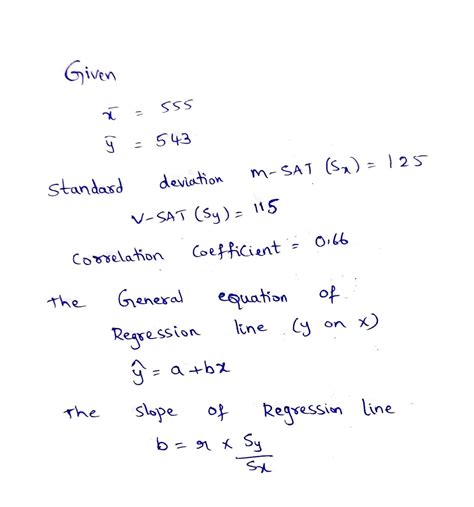 Given
x̄ = 555
ȳ = 543
Standard deviation m-SAT (Sx) = 125
V-SAT (Sy) = 115
Correlation Coefficient = 0.66
The General equation of
Regression line (y on x)
ŷ = a + bx
The slope of Regression line
b = r × Sy/Sx